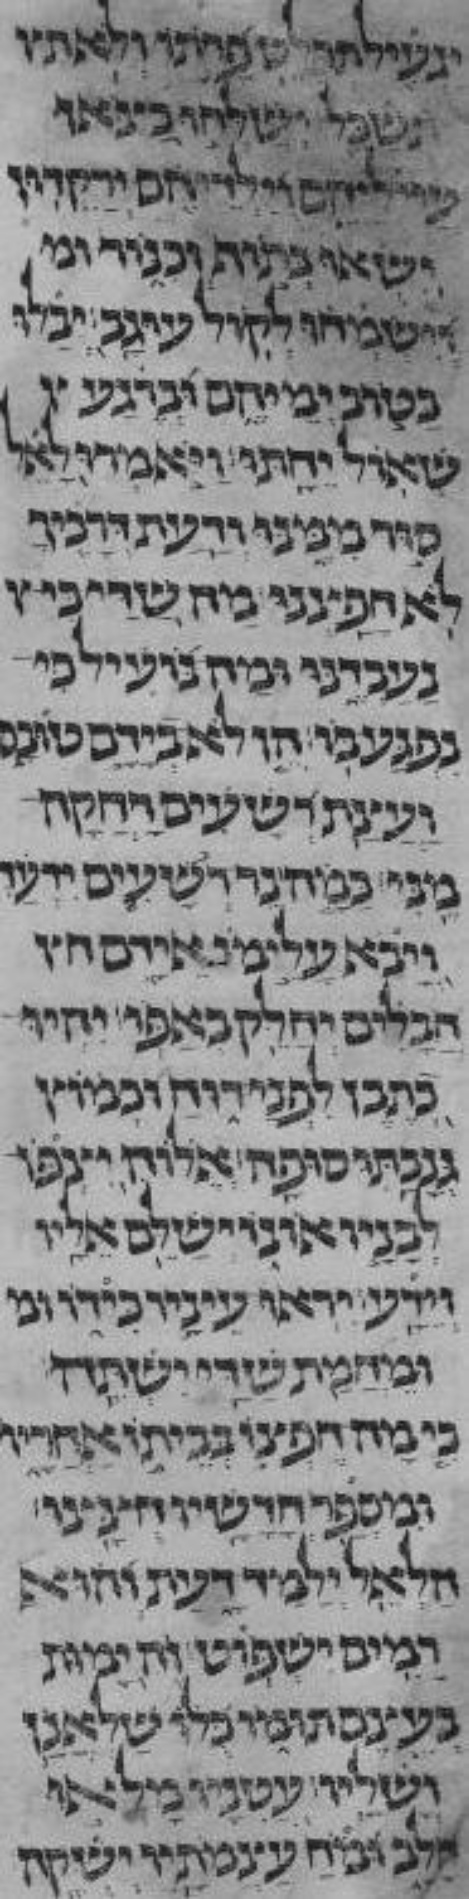 יגעיל תפלט פרתו ולא ת
תשכל ישלחו כצאן
עויליהם וילדיהם ירקדון
ישאו כתוף וכנור ומ
וישמחו לקול עוגב יבלו
בטוב ימיהם וברגע
שאול יחתו ויאמרו לאל
סור ממנו ודעת דרכיך
לא חפצנו מה שדי כי
נעבדנו ומה נועיל כי
נפגע בו הן לא בידם טובם
ועצת רשעים רחקה
מני כמה נר רשעים ידעך
ויבא עלימו אידם ח
חבלים יחלק באפו יהיו
כתבן לפני רוח וכמוץ
גנבתו סופה אלוה יצפן
לבניו אונו ישלם אליו
וידע יראו עיניו כידו ומ
ומחמת שדי ישתה
כי מה חפצו בביתו אחריו
ומספר חדשיו חצצו
הלאל ילמד דעת והוא
רמים ישפוט זה ימות
בעצם תומו כלו שלאנן
ושליו עטניו מלאו
חלב ומח עצמתיו ישקה